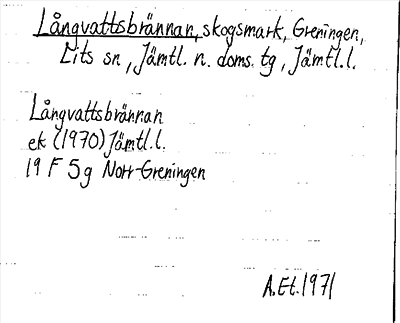 Långvattsbrännan, skogsmark, Greningen,
Lits sn, Jämtl. n. doms. tg, Jämtl.l.
Långvattsbrännan
ek (1970) Jämtl.l.
19 F 5g Norr-Greningen
A.Et.1971